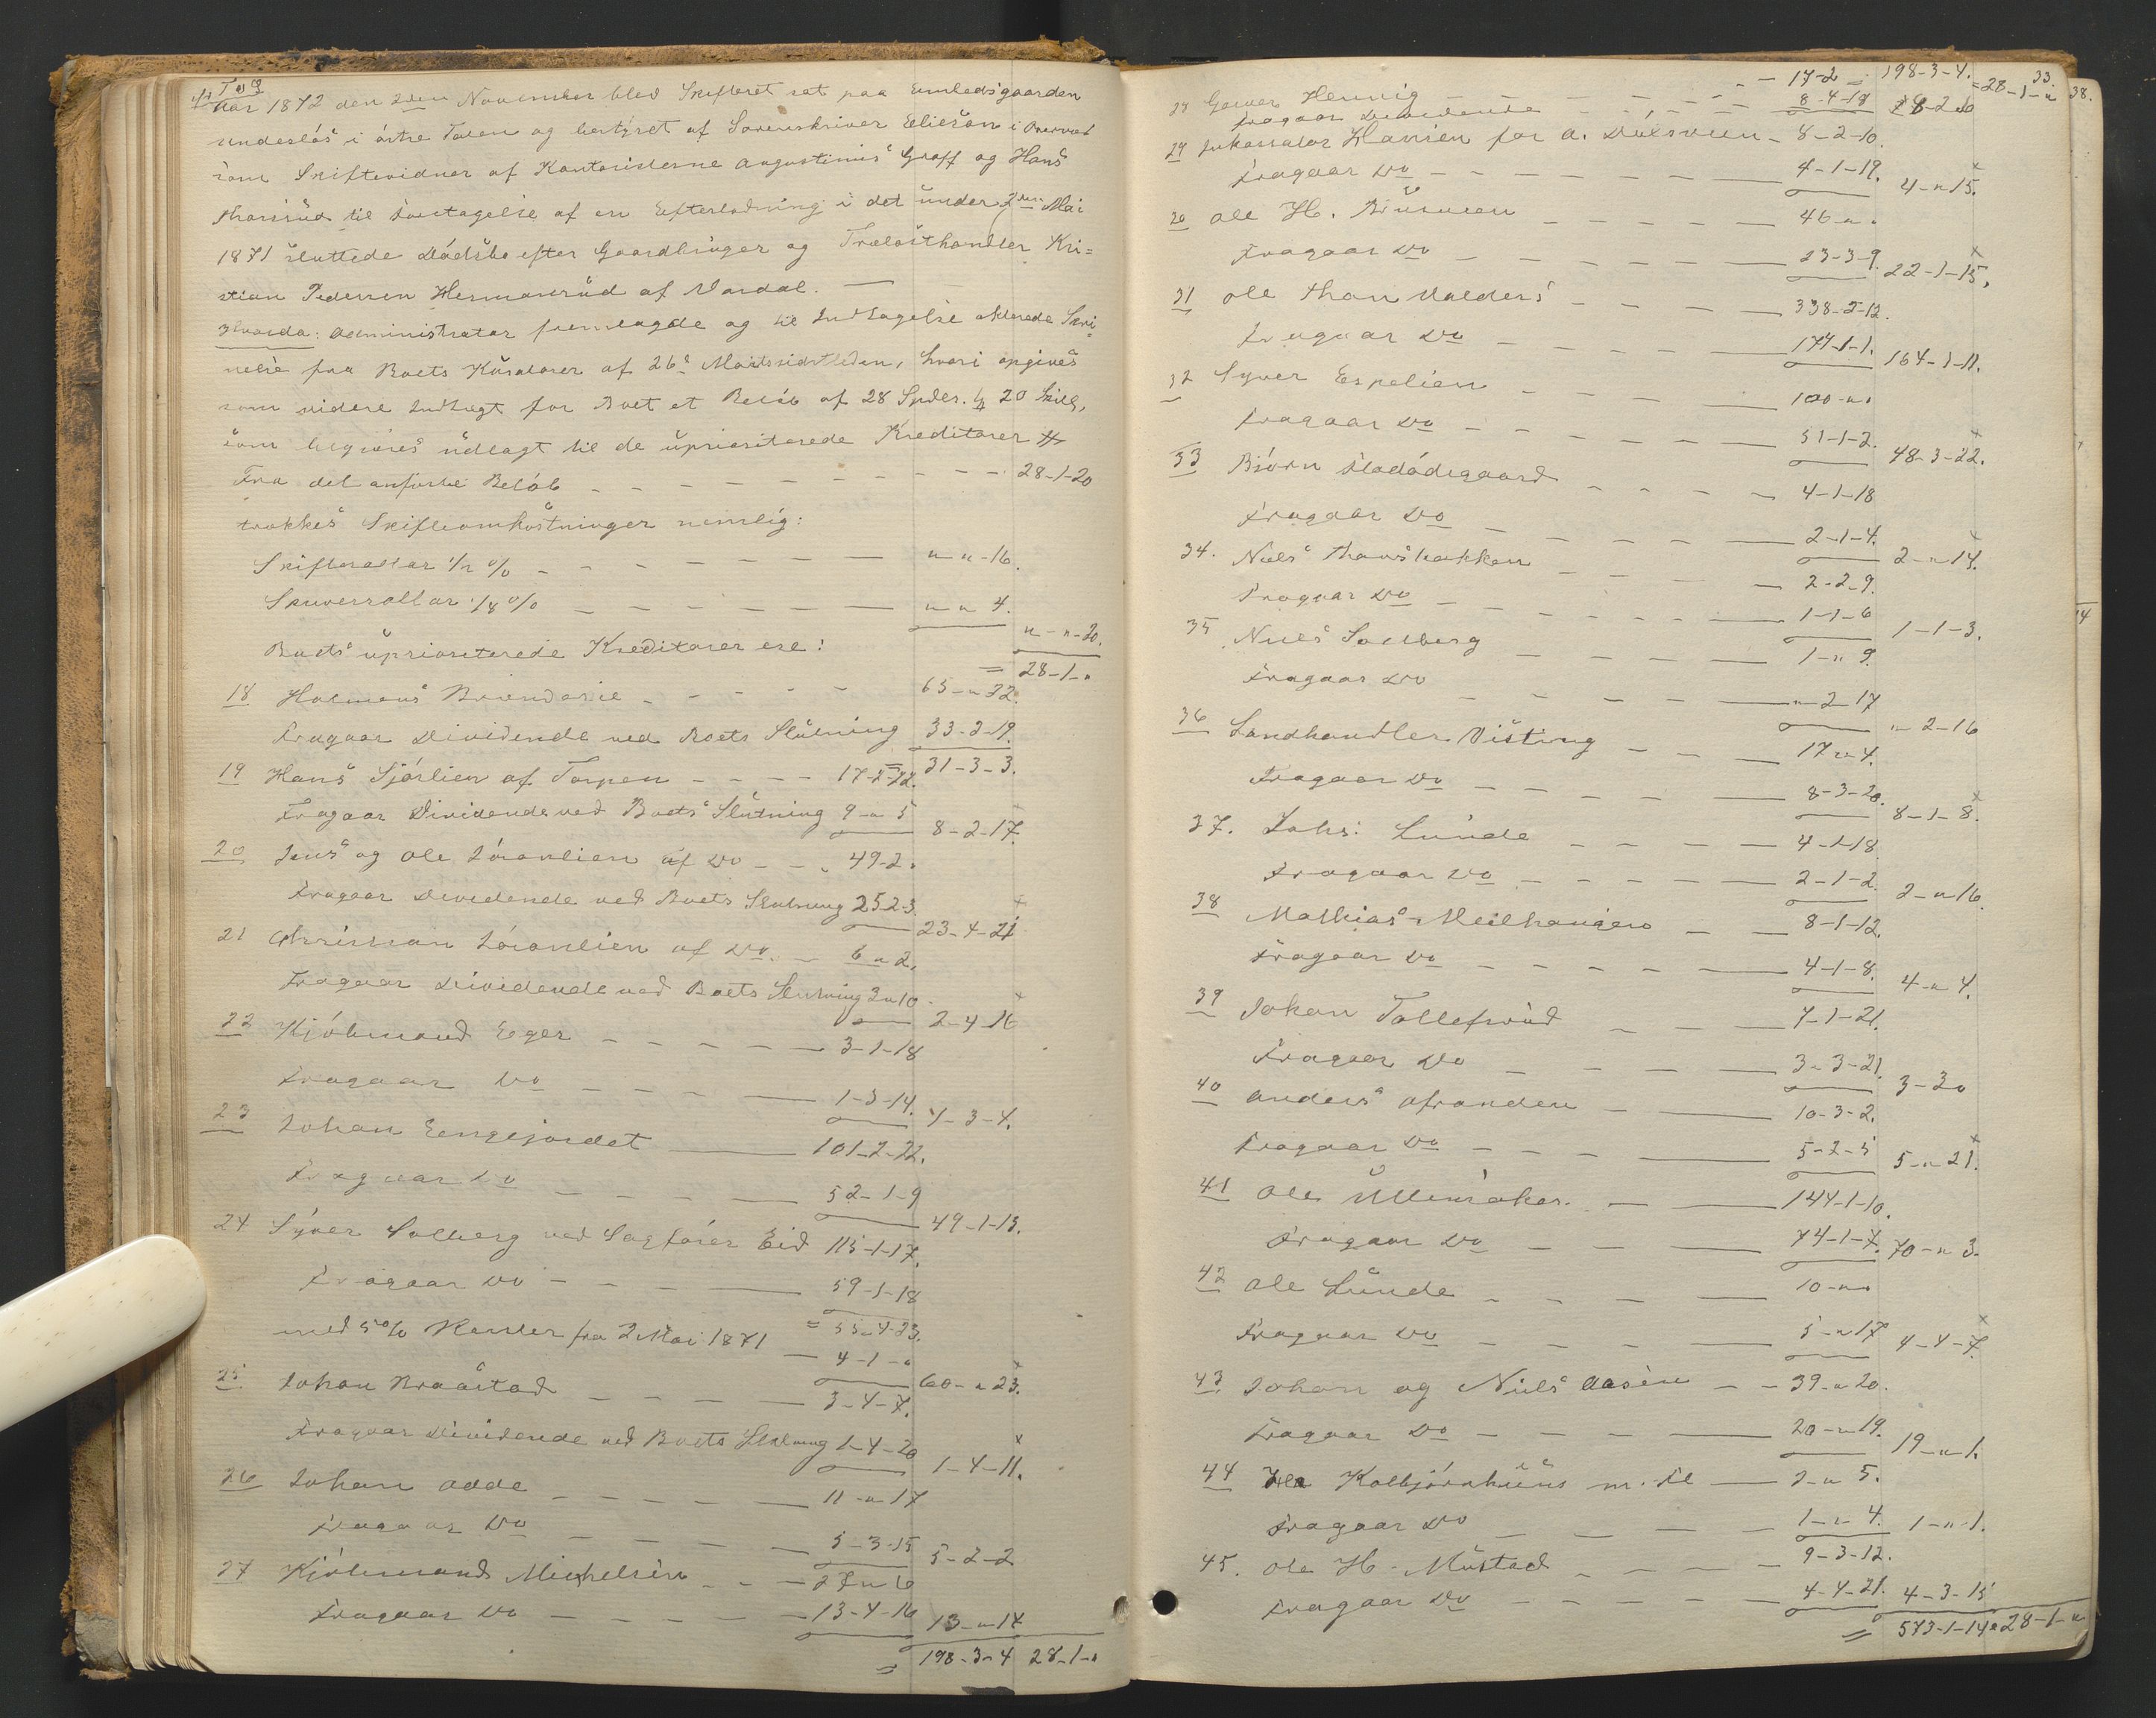 Aar 1872 den 2den November blev Skifteret sat paa Lensmedsgaarden
i østre Toten og bestyret af Sorenskriver Eliesøn i Overvær
som Skiftevidner af Kontoristerne Augustinus Graff og Hans
til Foretagelse af en Efterlodning i det under 2den Mai
1871 sluttede Dødsbo efter Gaardbruger og Trælasthandler Kri=
stian Pedersen Hermansrud af Vardal. —
Administrator fremlagde og til Indtagelse Skri
velse fra Boets Kuratorer af 26de Marts sidstleden, hvori opgives
som videre indbragt for Boet et Beløb af 28 Spdlr. 1 20 Skill,
som begjæres udlagt til de upriviterede Kreditorer
Fra det anførte Beløb - - - - 28-1-20
trækkes Skifteomkostninger nemlig:
Skifterettar 1/2 % - - - " " -16.
Skriversallar 1/8 % - - - " " 4.
" - " -20.
Boets uprioriterede Kreditorer ere:
= 28-1-"
18 Holmens Brænderie - - - 65-"-22.
Fragaar Dividende ved Boets Slutning 33-2-19.
31-3-3.
19 Hans Sjørlien af Torpen - - - 17-2-22.
Fragaar Dividende ved Boets Slutning 9-"-5
8-2-17.
20 Jens og Ole af Do - - 49-2.
Fragaar Dividende ved Boets Slutning 25-2-3.
23-4-21
21 Christian af Do. - 6-"-2.
Fragaar Dividende ved Boets Slutning 3-"-10
2-4-16
22 Kjøbmand Eger - - - 3-1-18
Fragaar Do - - - 1-3-14.
1-3-4.
23 Johan Eengejordet - 101-2-22.
Fragaar Do - - - 52-1-9
49-1-13.
24 Syver Solberg ved Sagfører Eid 115-1-17.
Fragaar Do - - - 59-1-18
= 55-4-23.
med 5% Renter fra 2 Mai 1871 - 4-1-"
60-"-23.
25 Johan Braastad - - - 3-4-7.
Fragaar Dividende ved Boets Slutning 1-4-20
1-4-11.
26 Johan Odde - - - 11-"-17
Fragaar Do - - - 5-3-15
5-2-2
27 Kjøbmand Michelsen - - - 27-"-6
Fragaar Do - - - 13-4-16
13-"-14
= 198-3-4 28-1-"
33.
198-3-4. = 28-1-"
Garver Hennig - - - 17-2-
Fragaar Dividende - - - 8-4-18
8-2-10
29 Inkassator Hansen for A. - 8-2-10.
Fragaar Do - - - 4-1-19.
4-"-15.
30 Ole H. - - - 46-".
Fragaar Do - - - 23-3-9.
22-1-15.
31 Ole Valders - - - 338-2-12.
Fragaar Do - - - 174-1-1.
164-1-11.
32 Syver Espelien - - - 100-".
Fragaar Do - - - 51-1-2.
48-3-22.
33 Bjørn - - - 4-1-18
Fragaar Do - 2-1-4.
2-"-14.
34. Niels - - - 2-2-9.
Fragaar Do - - - 1-1-6
1-1-3.
35 Niels Solberg - - - 1-"-9.
Fragaar Do - - - "-2-17
"-2-16
36 Landhandler Visting - - - 17-"-4.
Fragaar Do - - - 8-3-20.
8-1-8.
37. Johs: Lunde - - - 4-1-18
Fragaar Do - - - 2-1-2.
2-"-16
38 Mathias - - 8-1-12.
Fragaar Do - - - 4-1-8.
4-"-4.
39 Johan Tollefsrud - - - 7-1-21.
Fragaar Do - - - 3-3-21.
3-3"
40 Anders - - 10-3-2.
Fragaar Do - - - 5-2-5
5-"-21.
41 Ole Ullensaker. - - 144-1-10.
Fragaar Do - - - 74-1-7.
70-"-3.
42 Ole Lunde - - - 10-"-"
Fragaar Do - - - 5-"-17
4-4-7.
43. Johan og Niels Aasen - - 39-"-20.
Fragaar Do - - - 20-"-19.
19-"-1.
44 m. fl - 2-"-5.
Fragaar Do - - - 1-"-4.
1-"-1.
45. Ole H. Mustad - - - 9-3-12.
Fragaar Do - - - 4-4-21.
4-3-15
= 573-1-14 = 28-1-"
38.